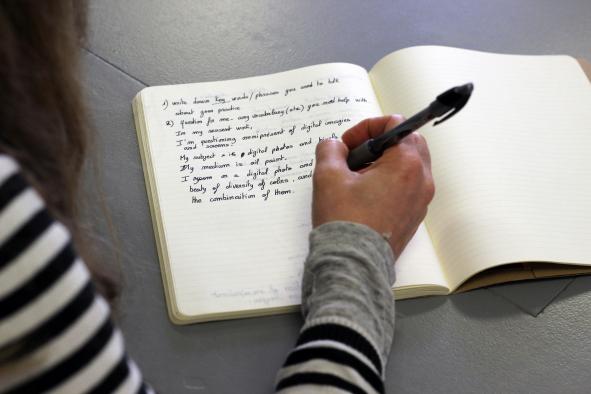 1) write down key words/phrases you need to talk
about your practice
2) question for me - any vocabulary (etc) you need help with
In my recent work,
I'm questioning omnipresent of digital images
and screens.
My subject is digital photos and
My medium is oil paint.
I zoom in a digital photo and
beaty of diversity of colors, and
the combination of them.